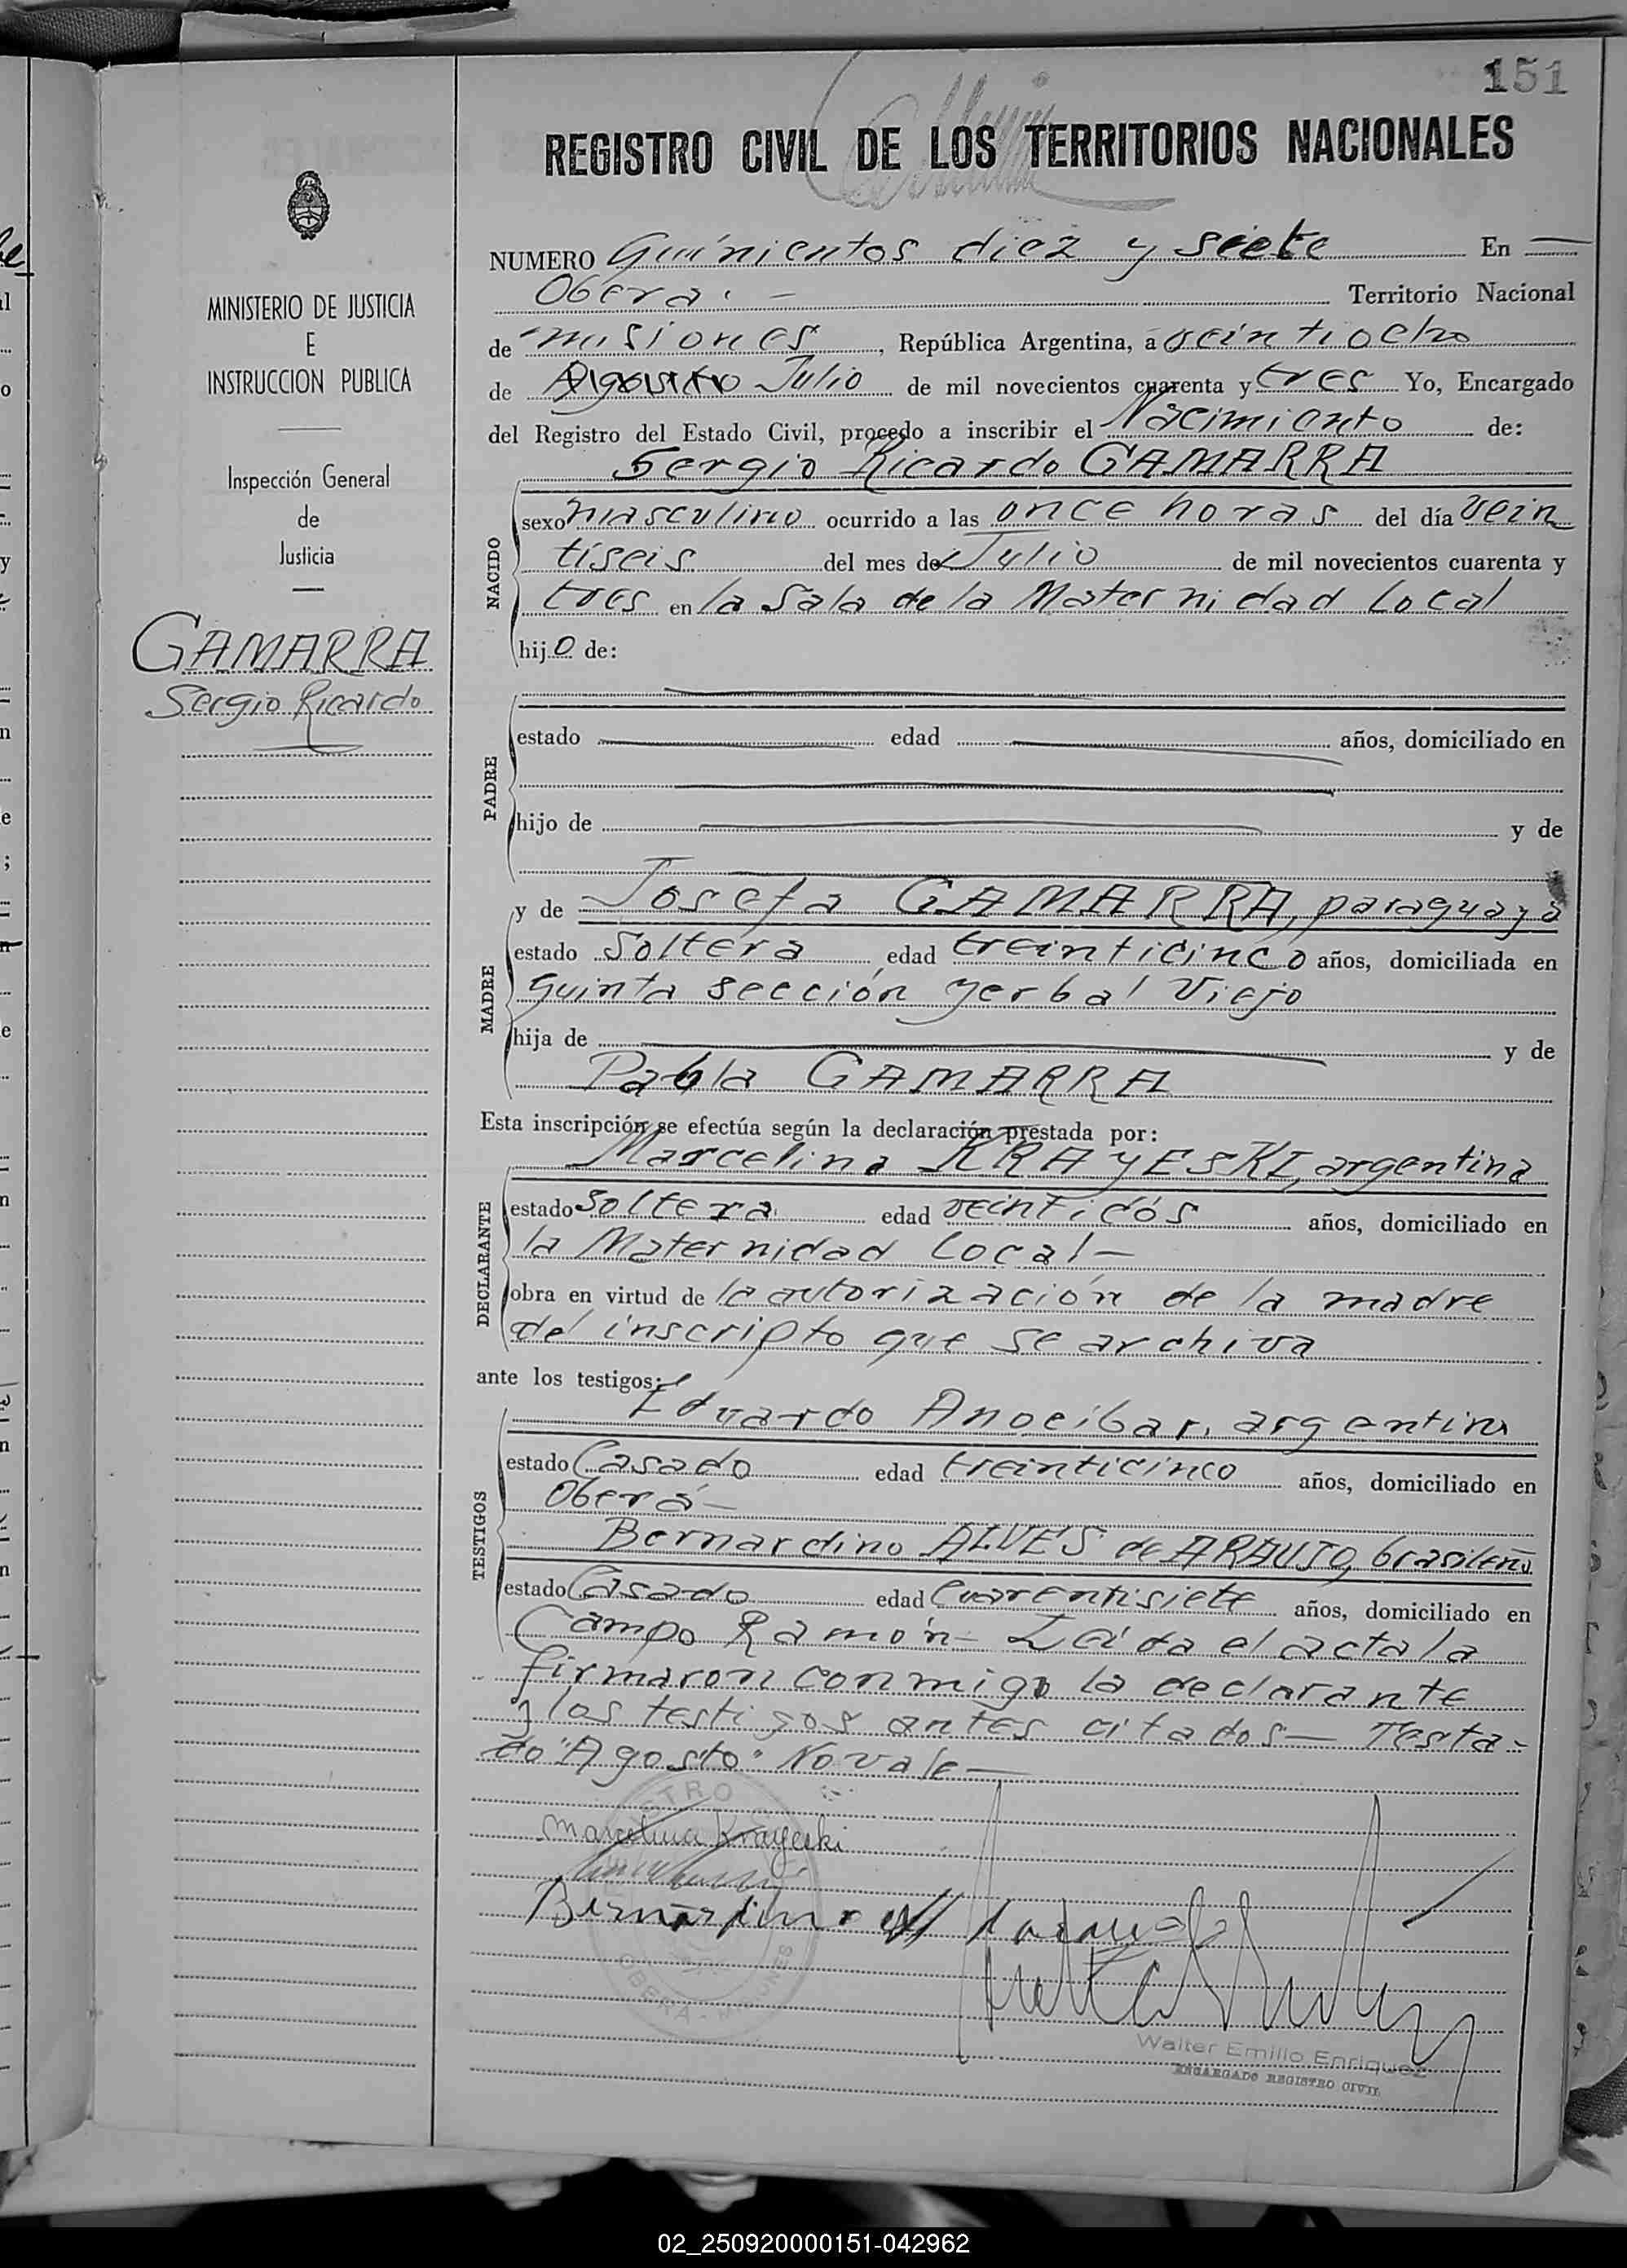 151
REGISTRO CIVIL DE LOS TERRITORIOS NACIONALES
MINISTERIO DE JUSTICIA
E
INSTRUCCION PUBLICA
Inspección General
de
Justicia
GAMARRA
Sergio Ricardo
NUMERO Quinientos diez y siete En —
Oberá. — Territorio Nacional
de misiones, República Argentina, a veintiocho
de Agosto Julio de mil novecientos cuarenta y tres Yo, Encargado
del Registro del Estado Civil, procedo a inscribir el Nacimiento de:
Sergio Ricardo GAMARRA
NACIDO
sexo masculino ocurrido a las once horas del día vein
tiseis del mes de Julio de mil novecientos cuarenta y
tres en la Sala de la Maternidad Local
hijo de:
PADRE
estado edad años, domiciliado en
hijo de y de
MADRE
y de Josefa GAMARRA, paraguaya
estado Soltera edad treinticinco años, domiciliada en
quinta sección yerbal Viejo
hija de y de
Pabla GAMARRA
Esta inscripción se efectúa según la declaración prestada por:
DECLARANTE
Marcelina KRAYESKI, argentina
estado Soltera edad veintidós años, domiciliado en
la Maternidad Local —
obra en virtud de la autorización de la madre
del inscripto que se archiva
ante los testigos:
TESTIGOS
Eduardo Anocibar, argentino
estado Casado edad treinticinco años, domiciliado en
Oberá —
Bernardino ALVES de ARAUJO, brasileño
estado Casado edad Cuarentisiete años, domiciliado en
Campo Ramón — Leída el acta la
firmaron conmigo la declarante
y los testigos antes citados — Testa-
do "Agosto" No vale —
Marcelina Krayeski
Bernardino
OBERA - MISIONES
Walter Emilio Enriquez
ENCARGADO REGISTRO CIVIL
02_250920000151-042962